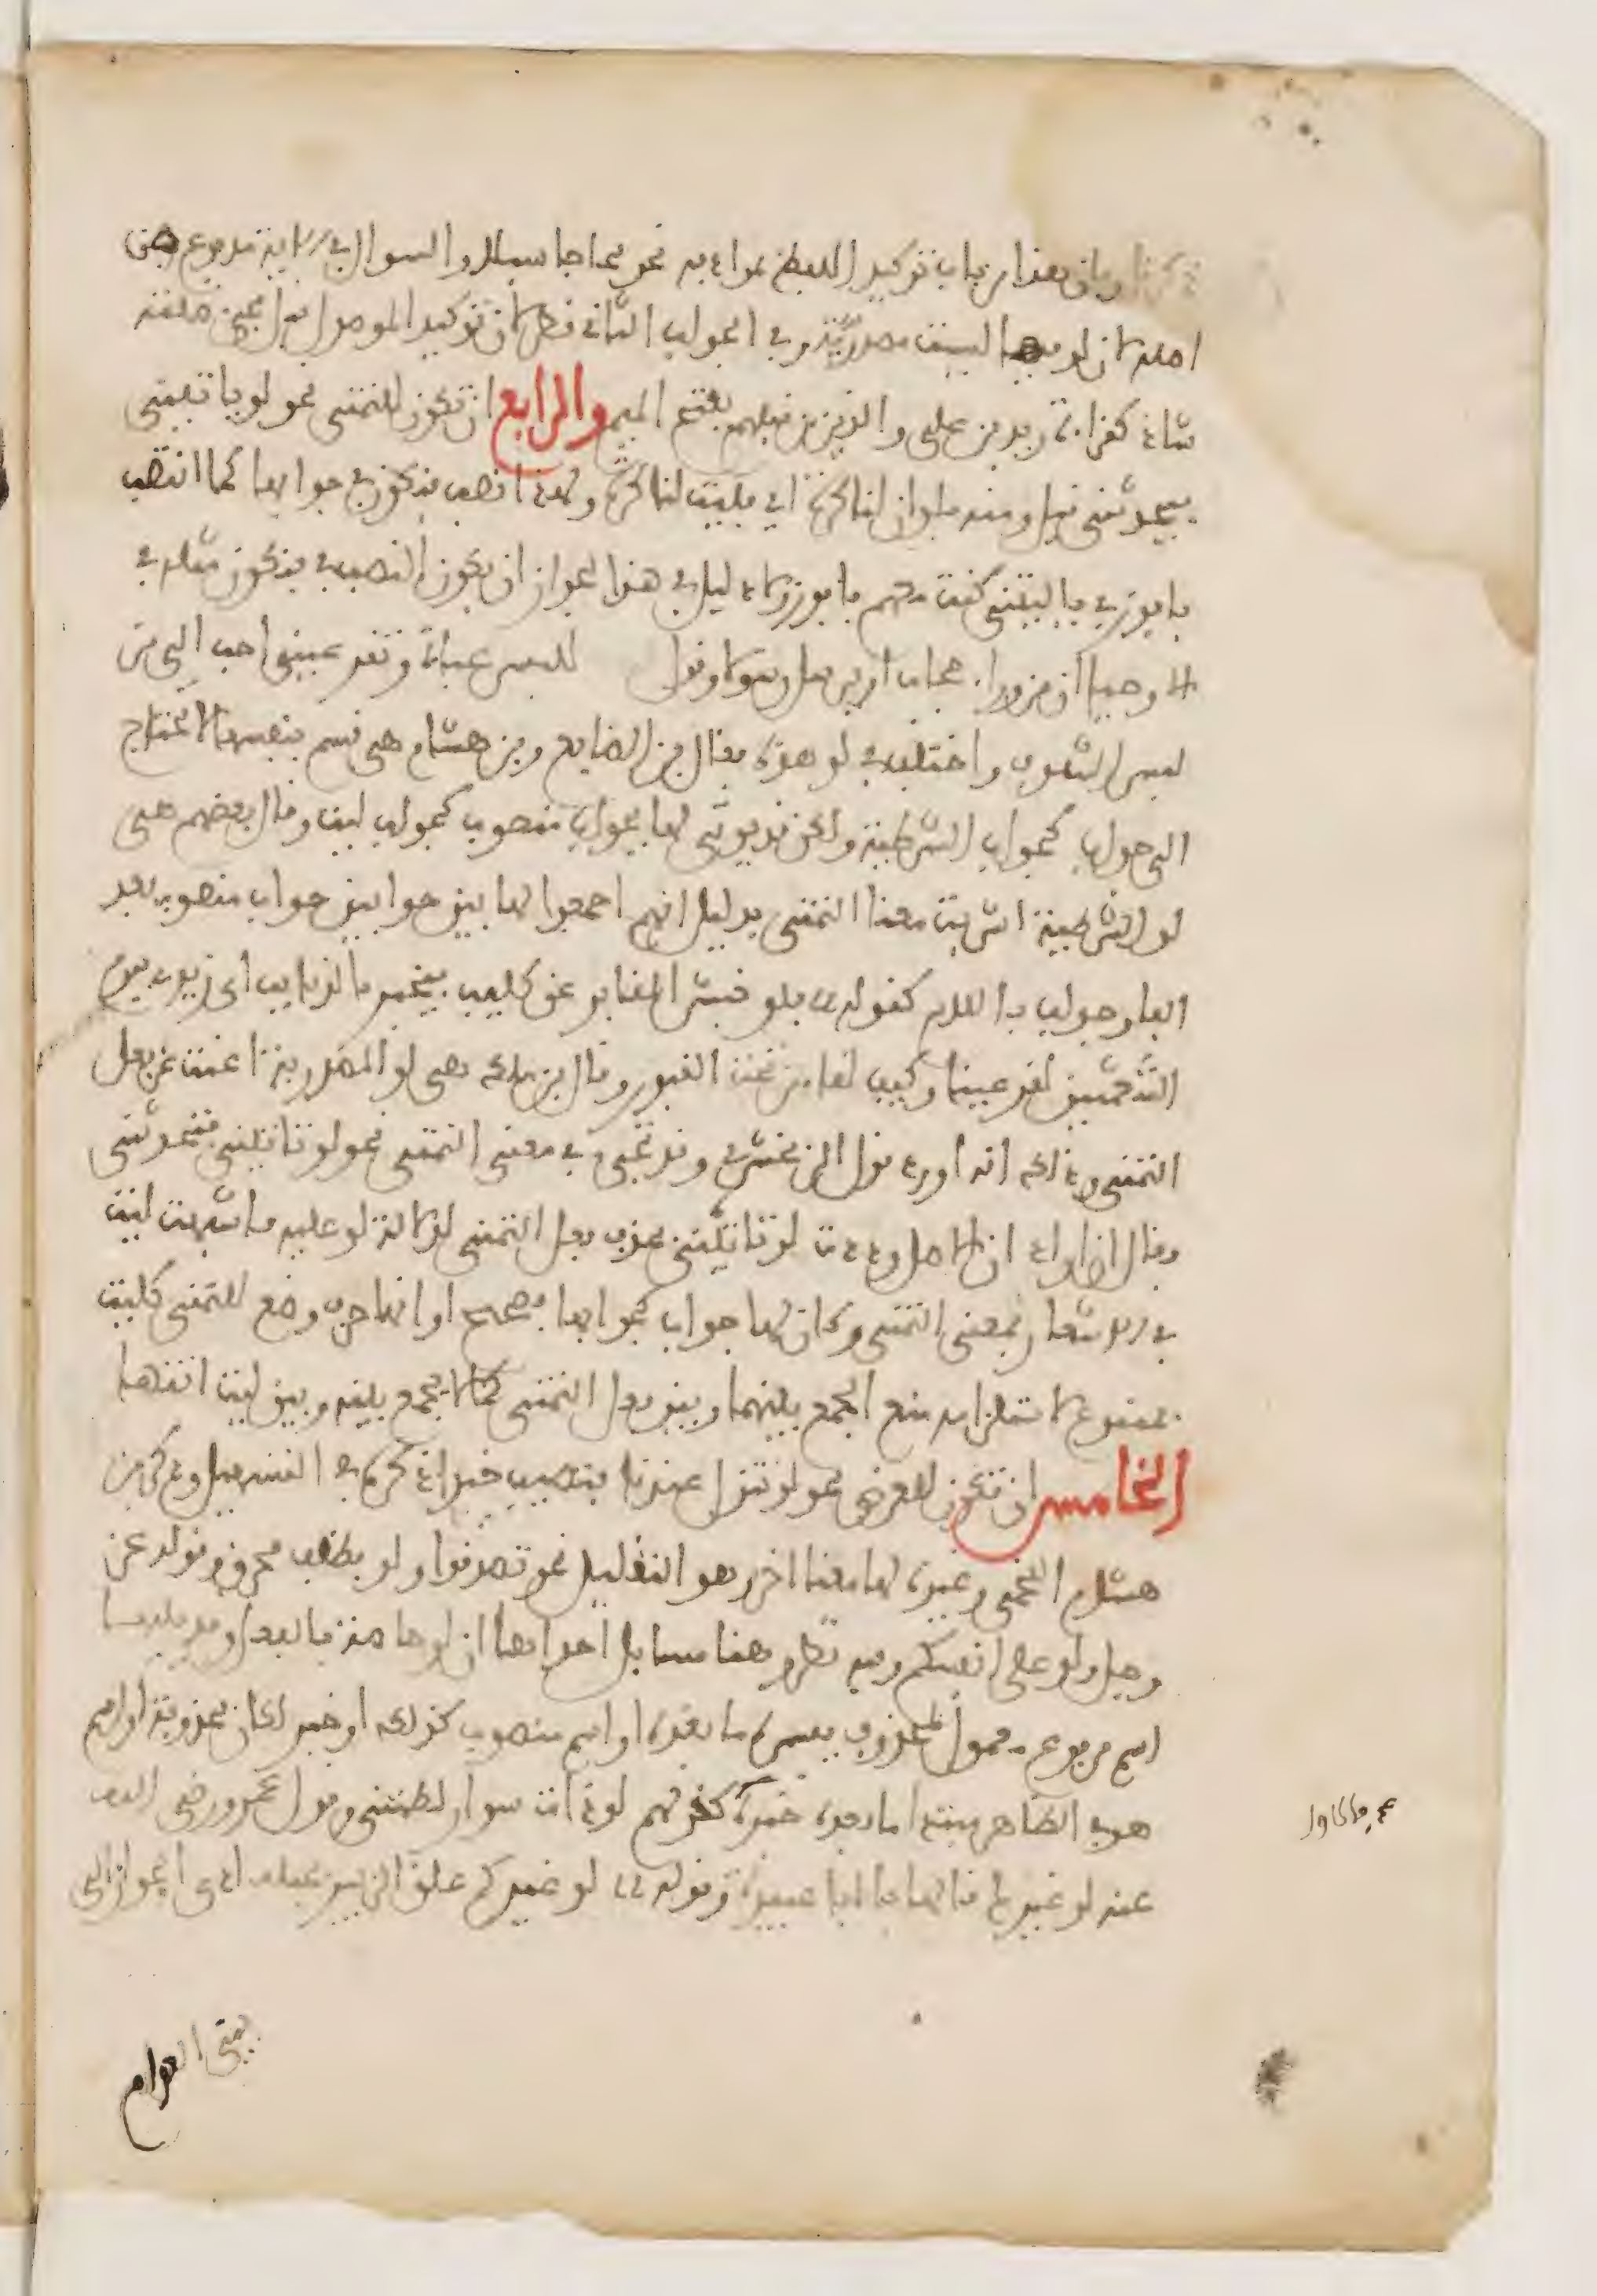 ذكرنا وبان هذا من باب توكيد اللفظ بمرادفه نحو فجاجا سبلا والسوال في الاية مدفوع من
اصله لان لو فيها ليست مصدرية وفي الجواب الثاني نظر لان توكيد الموصول قبل مجيء صلته
شاذ كقراءة زيد بن علي والذين من قبلهم بفتح الميم والرابع ان تكون للتمني نحو لو ياتيني
فيحدثني قيل ومنه فلو ان لنا كرة اي فليت لنا كرة ولهذا نصب فنكون في جوابها كما انتصب
فافوز في يا ليتني كنت معهم فافوز ولا دليل في هذا لجواز ان يكون النصب في فنكون مثله في
الا وحيا او من وراء حجاب او يرسل رسولا وقول للبس عباءة وتقر عيني احب الي من
لبس الشفوف واختلف في لو هذه فقال بن الضايع وبن هشام هي قسم بنفسها لا تحتاج
الى جواب كجواب الشرطية ولكن قد يوتى لها بجواب منصوب كجواب ليت وقال بعضهم هي
لو الشرطية اشربت معنا التمني بدليل انهم اجمعوا لها بين جوابين جواب منصوب بعد
الفا وجواب باللام كقوله فلو نبش المقابر عن كليب فيخبر بالذنايب اي زير بيوم
الشعثمين لقر عينا وكيف لقا من تحت القبور وقال بن ملك هي لو المصدرية اغنت عن فعل
التمني وذلك انه اورد قول الزمخشري وقد تجيء في معنى التمني نحو لو تاتيني فتحدثني
فقال ان اراد ان الاصل وددت لو تاتيني فحذف فعل التمني لدلالة لو عليه فاشبهت ليت
في الاشعار بمعنى التمني وكان لها جواب كجوابها فصحيح او انها حرف وضع للتمني كليت
فممنوع لاستلزامه منع الجمع بينها وبين فعل التمني كما لا يجمع بينه وبين ليت انتهى
الخامس ان تكون للعرض نحو لو تنزل عندنا فتصيب خيرا ذكره في التسهيل وذكر بن
هشام اللخمي وغيره لها معنا اخر وهو التقليل نحو تصدقوا ولو بظلف محرق وقوله عز
وجل ولو على انفسكم وفيه نظر وهنا مسايل احداها ان لو خاصة بالفعل وقد يليها
اسم مرفوع معمول لمحذوف يفسره ما بعده او اسم منصوب كذلك او خبر لكان محذوفة او اسم
هو في الظاهر مبتدا ما بعده خبره كقولهم لو ذات سوار لطمتني وقول عمر رضي الله
عنه لو غيرك قالها يا ابا عبيدة وقوله لو غيركم علق الزبير بحبله ادى الجوار الى
بني العوام